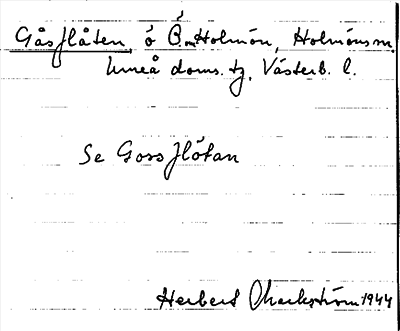 Gåsflåten, ö Ö. Holmön, Holmöns sn.
Umeå doms. tg. Västerb. l.
Se Gossflötan
Herbert Markström 1944